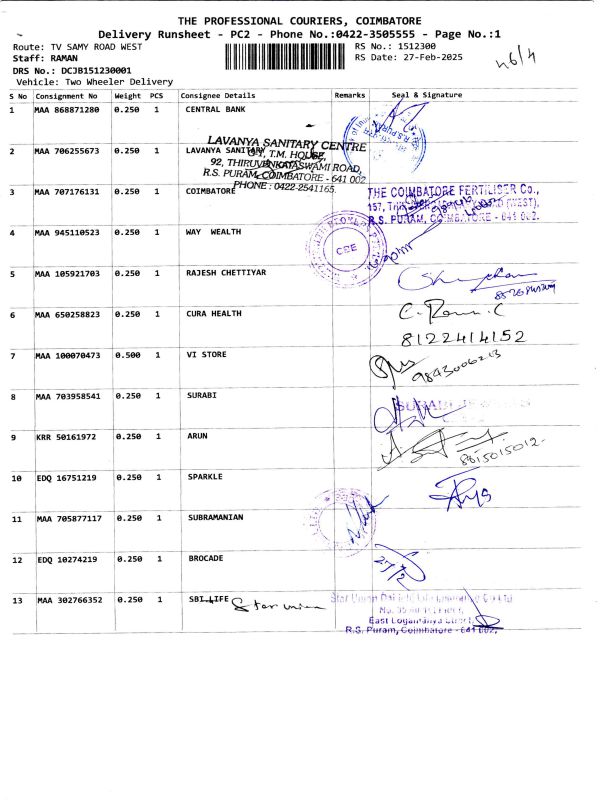 THE PROFESSIONAL COURIERS, COIMBATORE
Delivery Runsheet - PC2 - Phone No.:0422-3505555 - Page No.:1
Route: TV SAMY ROAD WEST
RS No.: 1512300
Staff: RAMAN
RS Date: 27-Feb-2025
DRS No.: DCJB151230001
Vehicle: Two Wheeler Delivery
S No Consignment No Weight PCS Consignee Details Remarks Seal & Signature
1 MAA 868871280 0.250 1 CENTRAL BANK
2 MAA 706255673 0.250 1 LAVANYA SANITARY
LAVANYA SANITARY CENTRE
T.M. HOUSE,
92, THIRUVENKATASWAMI ROAD,
R.S. PURAM, COIMBATORE - 641 002
PHONE : 0422-2541165.
3 MAA 707176131 0.250 1 COIMBATORE
THE COIMBATORE FERTILISER Co.,
R.S. PURAM, COIMBATORE - 641 002.
4 MAA 945110523 0.250 1 WAY WEALTH
CBE
5 MAA 105921703 0.250 1 RAJESH CHETTIYAR
6 MAA 650258823 0.250 1 CURA HEALTH
8122414152
7 MAA 100070473 0.500 1 VI STORE
9843006213
8 MAA 703958541 0.250 1 SURABI
9 KRR 50161972 0.250 1 ARUN
8815015012
10 EDQ 16751219 0.250 1 SPARKLE
11 MAA 705877117 0.250 1 SUBRAMANIAN
12 EDQ 10274219 0.250 1 BROCADE
27/2
13 MAA 302766352 0.250 1 SBI LIFE
Star union
East Logamanya Street,
R.S. Puram, Coimbatore - 641 002.